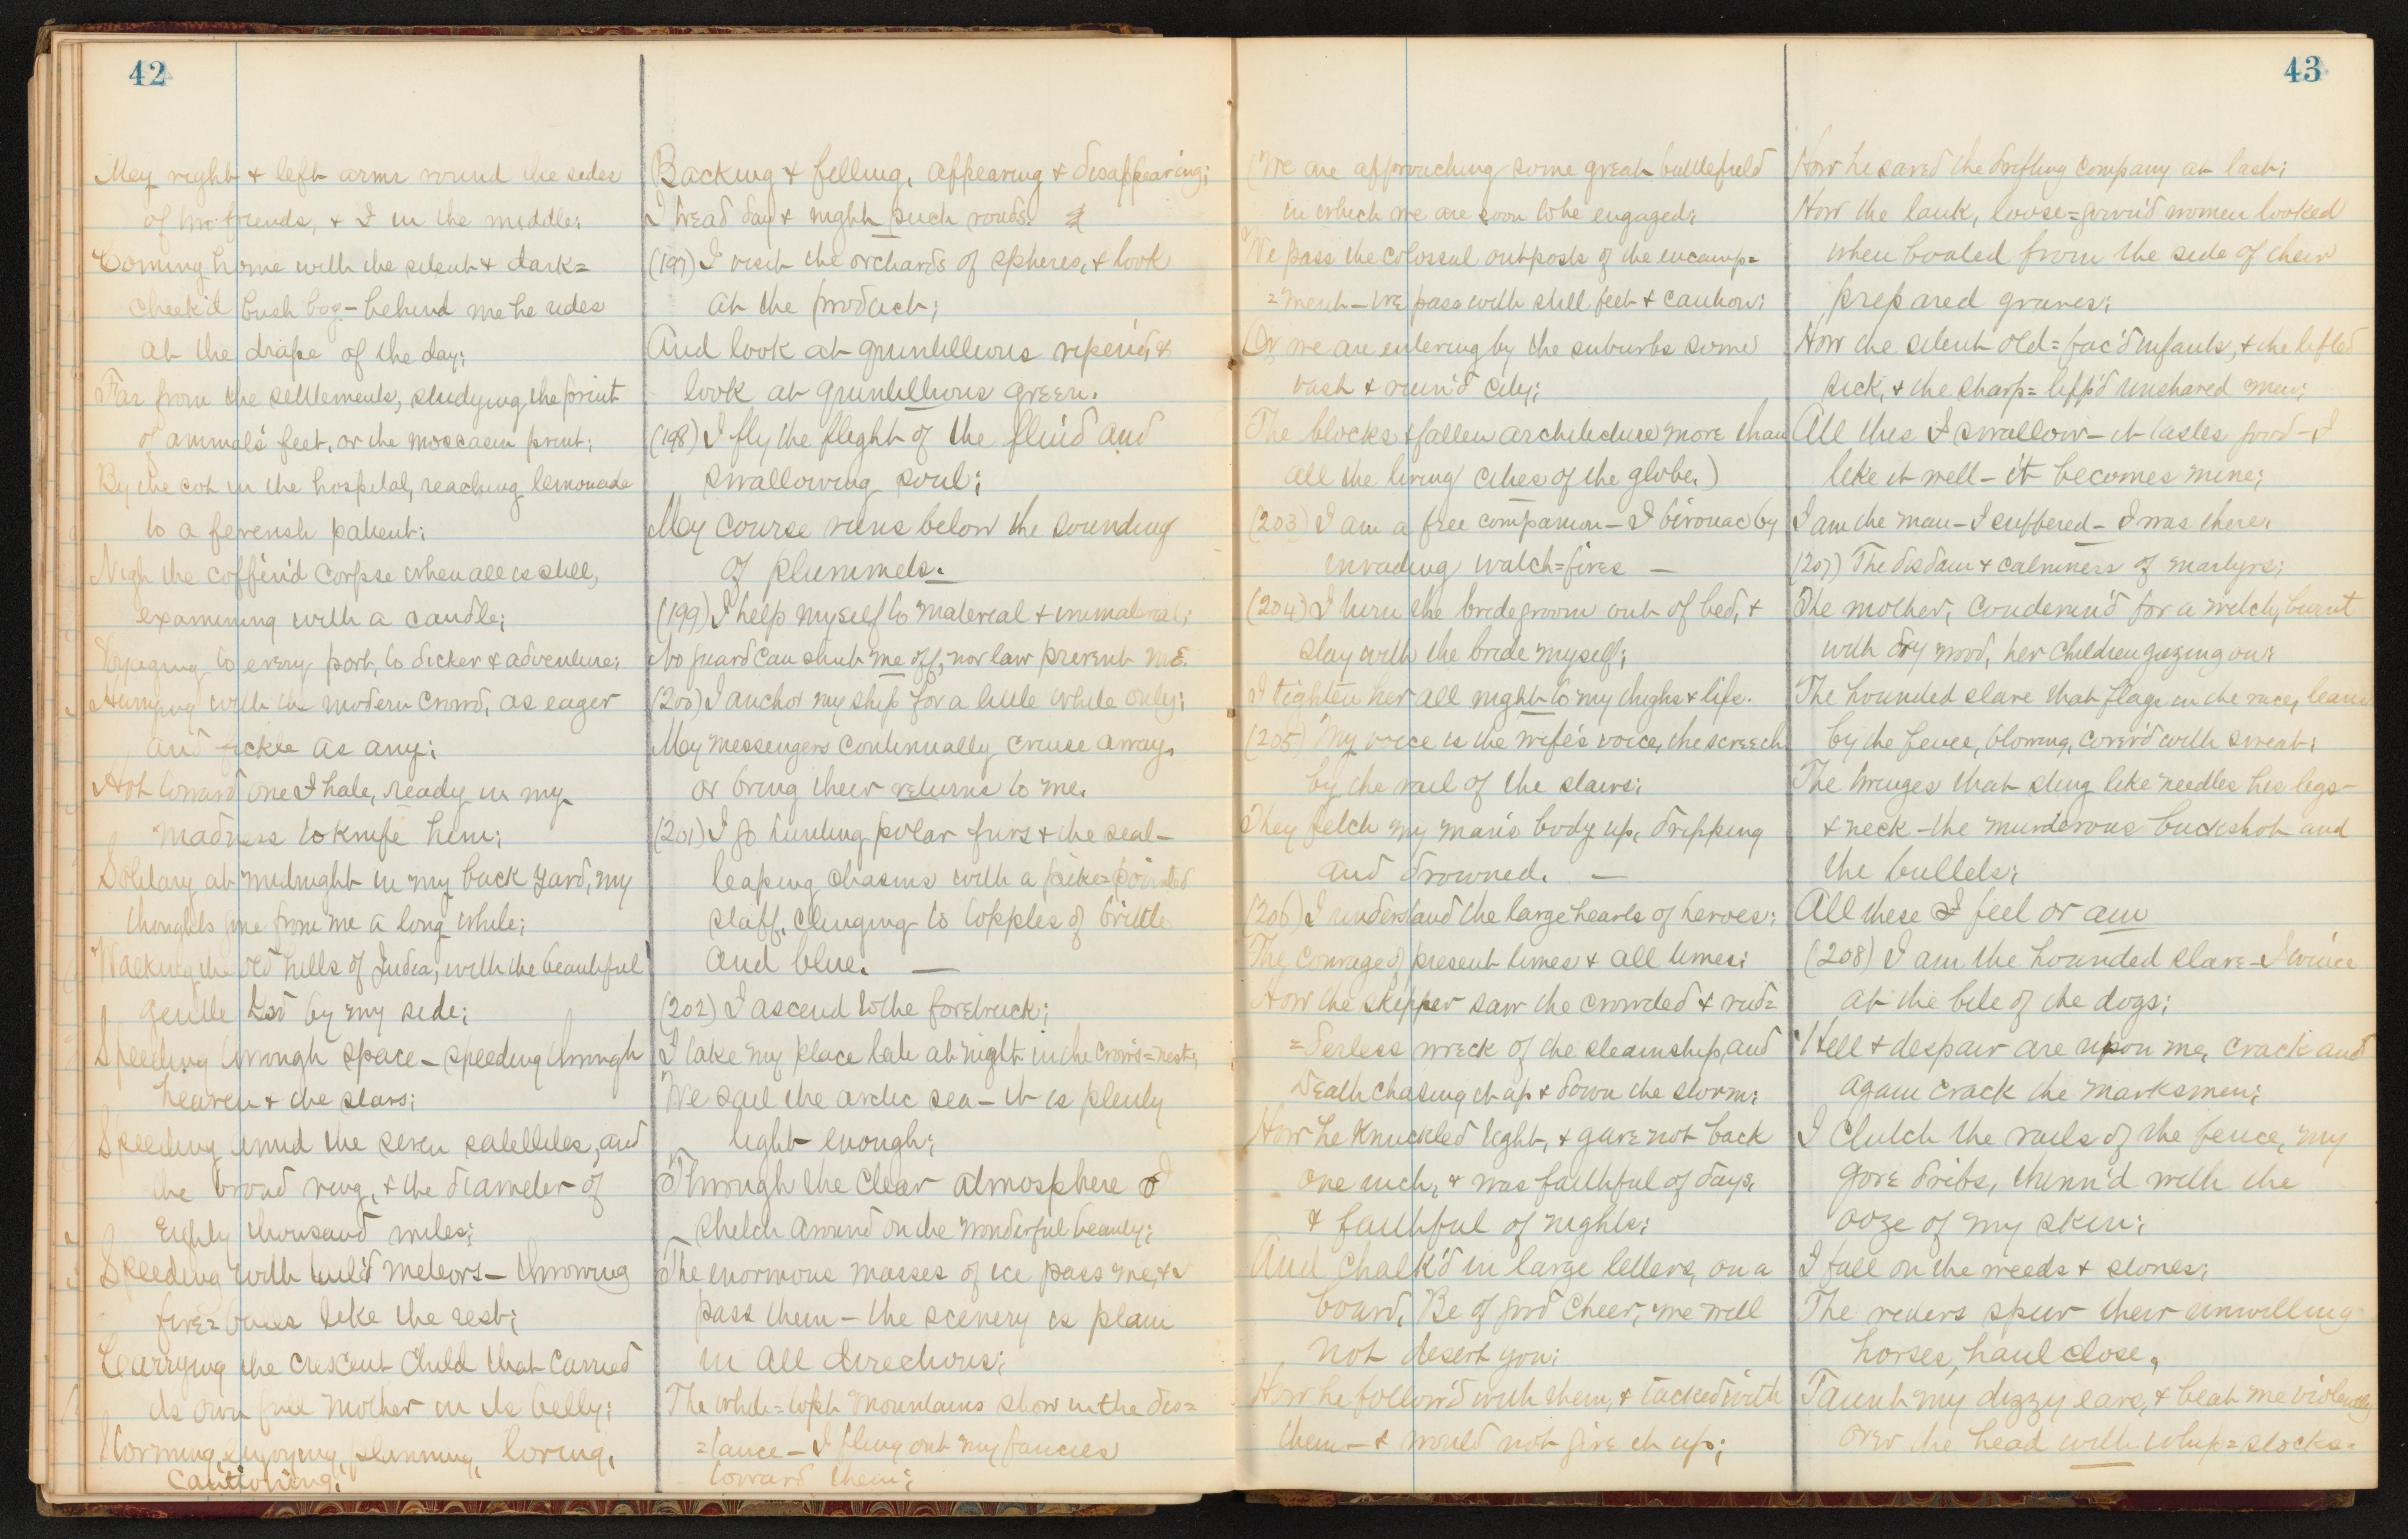 42
My right & left arms round the sides
of two friends, & I in the middle;
Coming home with the silent & dark=
cheek'd bush boy - behind me he rides
at the drape of the day;
Far from the settlements, studying the print
of animals' feet, or the moccasin print;
By the cot in the hospital, reaching lemonade
to a feverish patient;
Nigh the coffin'd corpse when all is still,
examining with a candle;
Voyaging to every port, to dicker & adventure;
Hurrying with the modern crowd, as eager
and fickle as any;
Hot toward one I hate, ready in my
madness to knife him;
Solitary at midnight in my back yard, my
thoughts gone from me a long while;
Walking the old hills of Judea, with the beautiful
gentle God by my side;
Speeding through space - speeding through
heaven & the stars;
Speeding amid the seven satellites, and
the broad ring, & the diameter of
eighty thousand miles;
Speeding with tail'd meteors - throwing
fire=balls like the rest;
Carrying the crescent child that carries
its own full mother in its belly;
Storming, enjoying, planning, loving,
cautioning;
Backing & filling, appearing & disappearing;
I tread day & night such roads.
(197) I visit the orchards of spheres, & look
at the product;
And look at quintillions ripen'd, &
look at quintillions green.
(198) I fly the flight of the fluid and
swallowing soul;
My course runs below the sounding
of plummets.
(199) I help myself to material & immaterial;
No guard can shut me off, nor law prevent me.
(200) I anchor my ship for a little while only;
My messengers continually cruise away,
or bring their returns to me.
(201) I go hunting polar furs & the seal -
leaping chasms with a pike=pointed
staff, clinging to topples of brittle
and blue. —
(202) I ascend to the foretruck;
I take my place late at night in the crow's=nest;
We sail the arctic sea - it is plenty
light enough;
Through the clear atmosphere I
stretch around on the wonderful beauty;
The enormous masses of ice pass me, & I
pass them - the scenery is plain
in all directions;
The white=topt mountains show in the dis=
=tance - I fling out my fancies
toward them;
43
(We are approaching some great battlefield
in which we are soon to be engaged;
We pass the colossal outposts of the encamp=
=ment - we pass with still feet & caution;
Or we are entering by the suburbs some
vast & ruin'd city;
The blocks & fallen architecture more than
all the living cities of the globe.)
(203) I am a free companion - I bivouac by
invading watch=fires —
(204) I turn the bridegroom out of bed, &
stay with the bride myself;
I tighten her all night to my thighs & lips.
(205) My voice is the wife's voice, the screech
by the rail of the stairs;
They fetch my man's body up, dripping
and drowned. —
(206) I understand the large hearts of heroes;
The courage of present times & all times;
How the skipper saw the crowded & rud=
=derless wreck of the steamship, and
death chasing it up & down the storm;
How he knuckled tight, & gave not back
one inch, & was faithful of days,
& faithful of nights;
And chalk'd in large letters, on a
board, Be of good cheer, we will
not desert you;
How he follow'd with them, & tacked with
them - & would not give it up;
How he saved the drifting company at last;
How the lank, loose=gown'd women looked
when boated from the side of their
prepared graves;
How the silent old=fac'd infants, & the lifted
sick, & the sharp=lipp'd unshaved men;
All this I swallow - it tastes good - I
like it well - it becomes mine;
I am the man - I suffered - I was there.
(207) The disdain & calmness of martyrs;
The mother, condemn'd for a witch, burnt
with dry wood, her children gazing on;
The hounded slave that flags in the race, leans
by the fence, blowing, cover'd with sweat;
The twinges that sting like needles his legs -
& neck - the murderous buckshot and
the bullets;
All these I feel or am
(208) I am the hounded slave - I wince
at the bite of the dogs;
Hell & despair are upon me, crack and
again crack the marksmen;
I clutch the rails of the fence, my
gore dribs, thinn'd with the
ooze of my skin;
I fall on the weeds & stones;
The riders spur their unwilling
horses, haul close,
Taunt my dizzy ears, & beat me violently
over the head with whip=stocks.